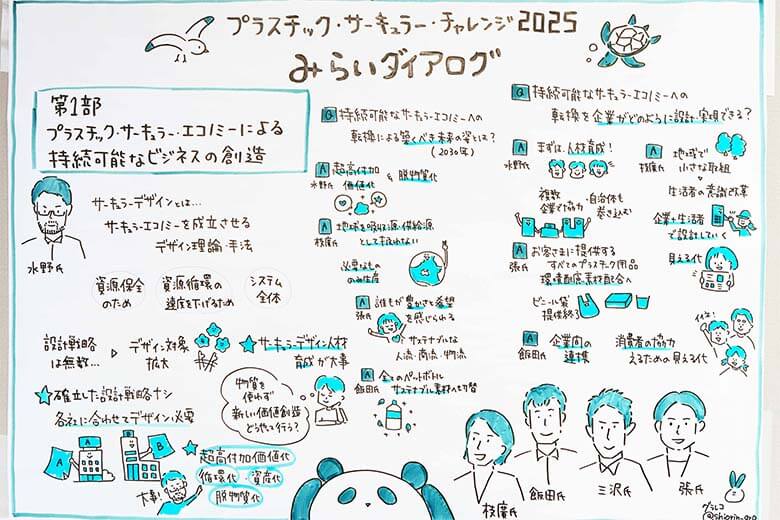 プラスチック・サーキュラー・チャレンジ2025
みらいダイアログ
第1部
プラスチック・サーキュラー・エコノミーによる
持続可能なビジネスの創造
水野氏
サーキュラーデザインとは…
サーキュラーエコノミーを成立させる
デザイン理論・手法
資源保全
のため
資源循環の
速度を下げるため
システム
全体
設計戦略
は無数…
デザイン対象
拡大
サーキュラーデザイン人材
育成が大事
確立した設計戦略ナシ
各社に合わせてデザイン必要
A
A
B
B
大事!
超高付加価値化
循環化・資産化
脱物質化
物質を
使わず
新しい価値創造
どうやって行う?
Q 持続可能なサーキュラーエコノミーへの
転換による築くべき未来の姿とは?
(2030年)
A 超高付加
価値化
& 脱物質化
水野氏
A 地球を吸収源・供給源
として扱わない
枝廣氏
必要なもの
のみ生産
A 誰もが豊かさと希望
を感じられる
張氏
サステナブルな
人流・商流・物流
A 全てのペットボトル
サステナブル素材へ切替
飯田氏
Q 持続可能なサーキュラーエコノミーへの
転換を企業がどのように設計・実現できる?
A まずは、人材育成!
水野氏
複数
企業で協力
自治体も
巻き込む
A 地域で
小さな取組
枝廣氏
生活者の意識改革
企業+生活者
で設計していく
見える化
A お客さまに提供する
すべてのプラスチック用品
環境配慮素材配合へ
張氏
ビニール袋
提供終了
イイネ!
A 企業間の
連携
飯田氏
消費者の協力
えるための見える化
枝廣氏
飯田氏
三沢氏
張氏
グラレコ